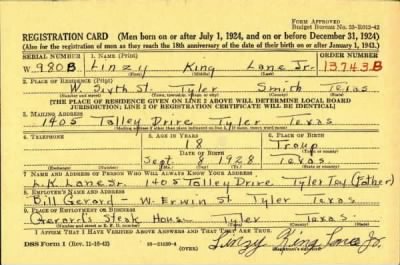 FORM APPROVED
Budget Bureau No. 33-R012-43
REGISTRATION CARD (Men born on or after July 1, 1924, and on or before December 31, 1924)
(Also for the registration of men as they reach the 18th anniversary of the date of their birth on or after January 1, 1943.)
SERIAL NUMBER 1. NAME (Print) ORDER NUMBER
W 980B Linzy King Lane Jr. 13743B
(First) (Middle) (Last)
2. PLACE OF RESIDENCE (Print)
W. Sixth St. Tyler Smith Texas
[THE PLACE OF RESIDENCE GIVEN ON LINE 2 ABOVE WILL DETERMINE LOCAL BOARD
JURISDICTION; LINE 2 OF REGISTRATION CERTIFICATE WILL BE IDENTICAL]
3. MAILING ADDRESS
1405 Talley Drive Tyler Texas
4. TELEPHONE 5. AGE IN YEARS 6. PLACE OF BIRTH
18 Troup
DATE OF BIRTH
Sept. 8 1928 Texas
7. NAME AND ADDRESS OF PERSON WHO WILL ALWAYS KNOW YOUR ADDRESS
L.K. Lane Sr. 1405 Talley Drive Tyler Tex (Father)
8. EMPLOYER'S NAME AND ADDRESS
Bill Gerard - W. Erwin St Tyler Texas
9. PLACE OF EMPLOYMENT OR BUSINESS
Gerard's Steak House Tyler Texas
I AFFIRM THAT I HAVE VERIFIED ABOVE ANSWERS AND THAT THEY ARE TRUE.
DSS Form 1 (Rev. 11-16-42) (OVER) Linzy King Lane Jr.